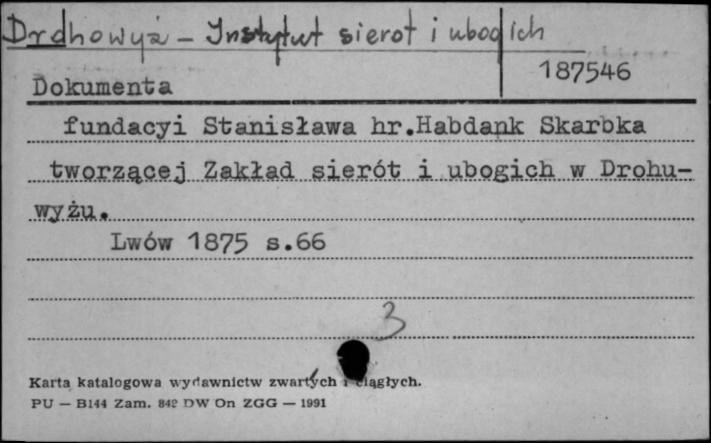 Drdhowyż - Instytut sierot i ubogich
187546
Dokumenta
fundacyi Stanisława hr.Habdank Skarbka
tworzącej Zakład sierót i ubogich w Drohu-
wyżu.
Lwów 1875 s.66
3
Karta katalogowa wydawnictw zwartych i ciągłych.
PU — B144 Zam. 842 DW On ZGG — 1991